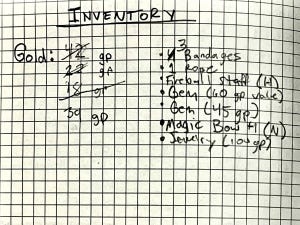 INVENTORY
Gold: 42 gp
22 gp
18 gp
39 gp
3
• 4 Bandages
• 1 rope
• Fireball Staff (H)
• Gem (60 gp vale)
• Gem (45 gp)
• Magic Bow +1 (N)
• Jewelry (100gp)